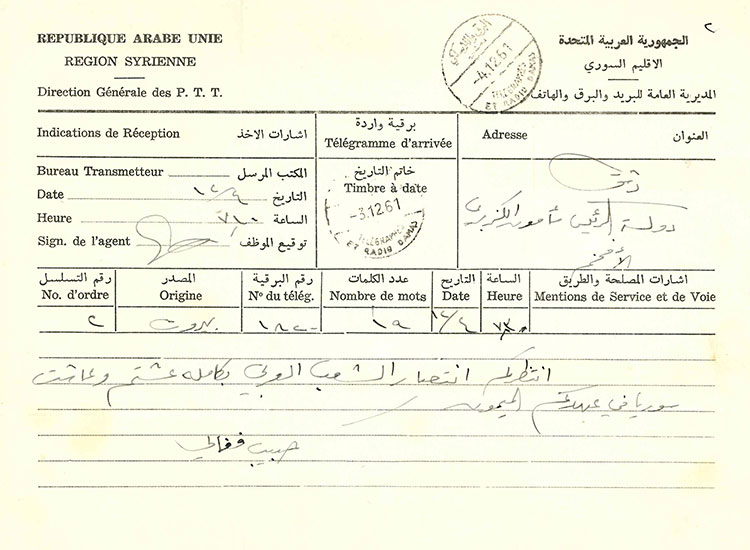 REPUBLIQUE ARABE UNIE
REGION SYRIENNE
Direction Générale des P. T. T.
٢
الجمهورية العربية المتحدة
الاقليم السوري
المديرية العامة للبريد والبرق والهاتف
-4.12.61
TELEGRAMMES
ET RADIO DAMAS
Indications de Réception اشارات الاخذ
Bureau Transmetteur المكتب المرسل
Date ١٢/٤ التاريخ
Heure الساعة
Sign. de l'agent توقيع الموظف
برقية واردة
Télégramme d'arrivée
خاتم التاريخ
Timbre à date
-3.12.61
TELEGRAMMES
ET RADIO DAMAS
Adresse العنوان
دمشق
دولة الرئيس مأمون الكزبري
الأفخم
رقم التسلسل المصدر رقم البرقية عدد الكلمات التاريخ الساعة اشارات المصلحة والطريق
No. d'ordre Origine Nº du télég. Nombre de mots Date Heure Mentions de Service et de Voie
٢ بيروت ١٩ ١٢/٤
انتظركم انتصار الشعب العربي بكامله عشتم وعاشت
سوريا في عهدكم الميمون
حبيب